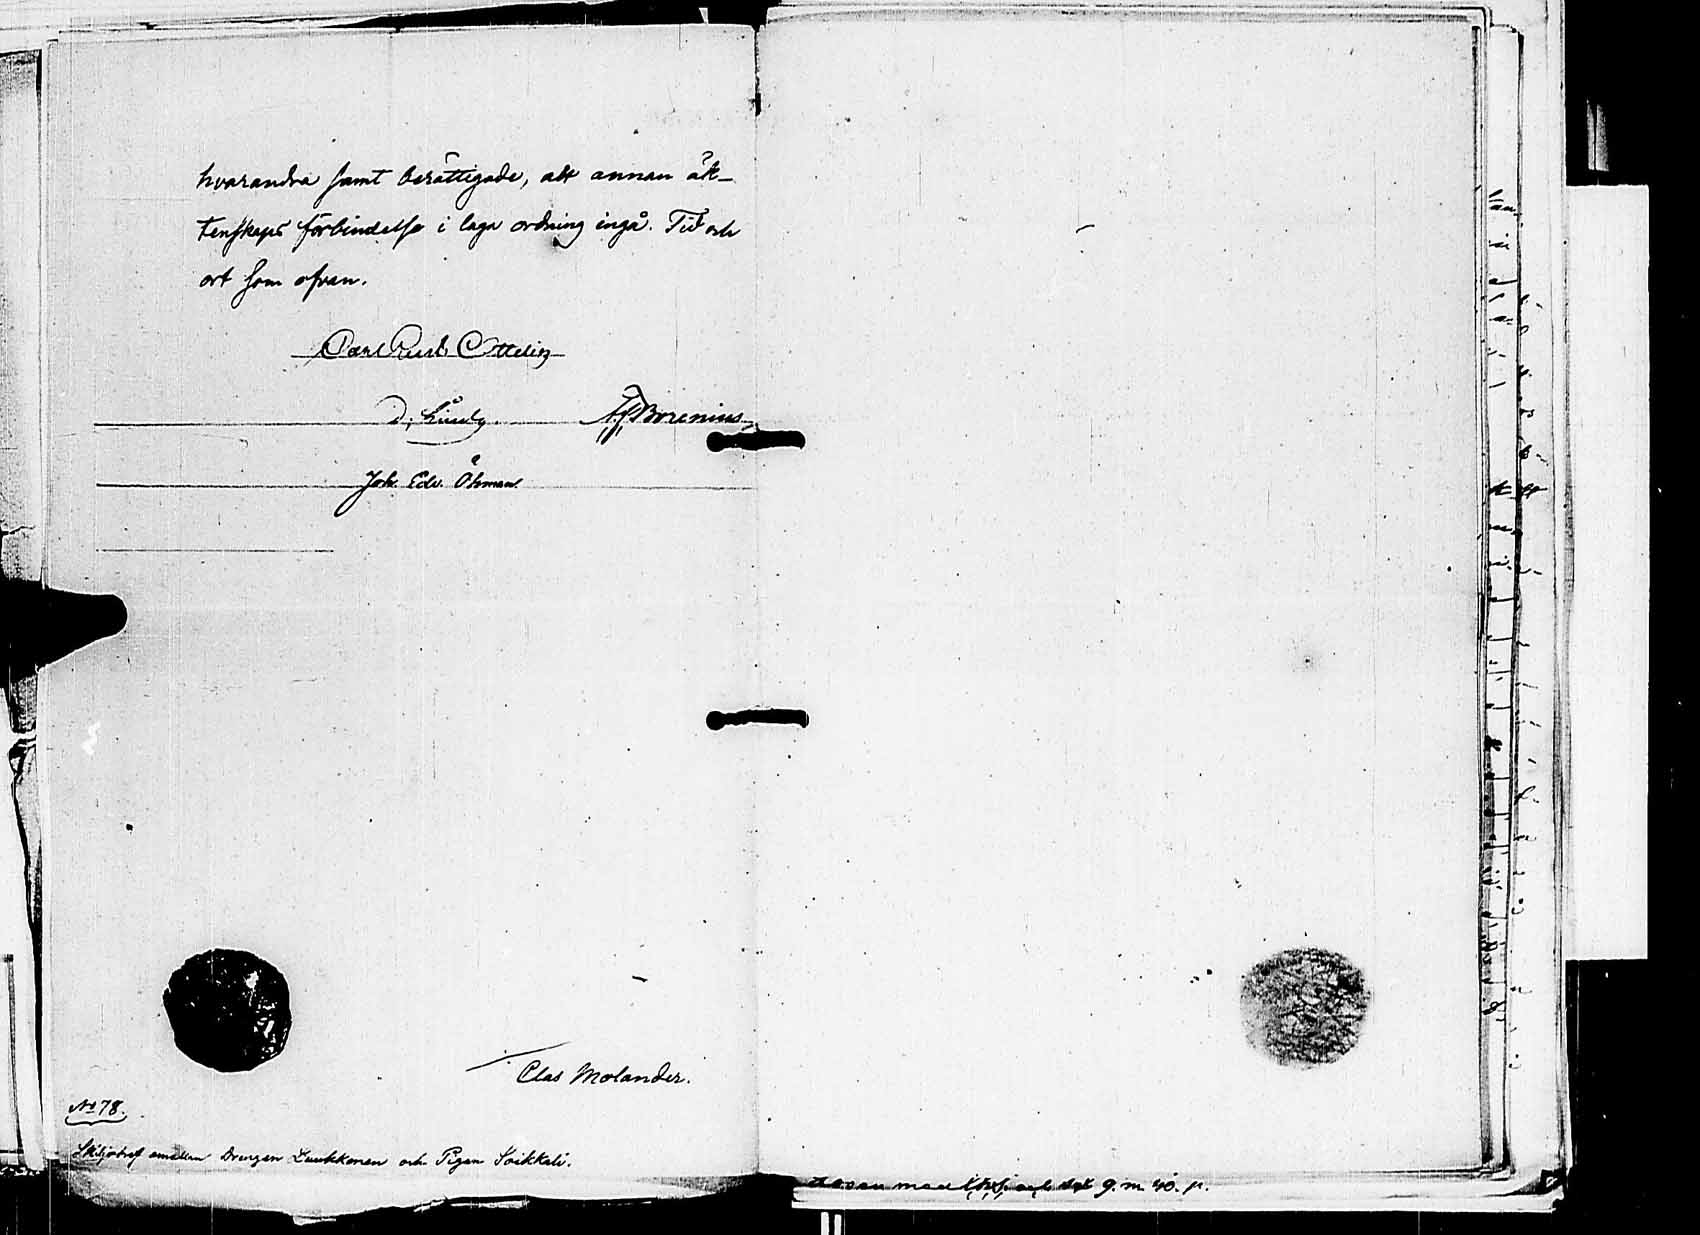 hvarandra samt berättigade, att annan äk-
tenskaps förbindelse i laga ordning ingå. Tid och
ort som ofvan.
Carl Ottelin
D. Lindh Borenius
Joh. Edv. Öhman
Clas Molander.
No 78.
Skiljobref emellan Drengen Luukkonen och Pigan Soikkeli.
med och 9. m 40. p.